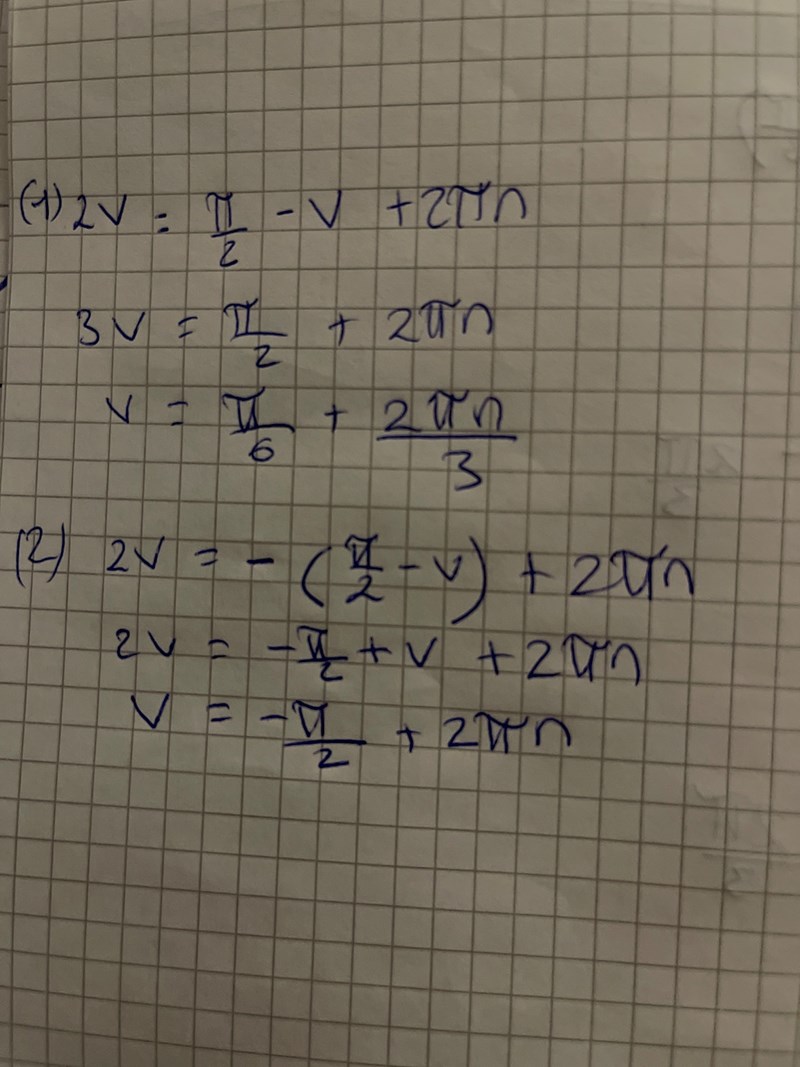 (1) 2v = π/2 - v + 2πn
3v = π/2 + 2πn
v = π/6 + 2πn/3
(2) 2v = - (π/2 - v) + 2πn
2v = -π/2 + v + 2πn
v = -π/2 + 2πn